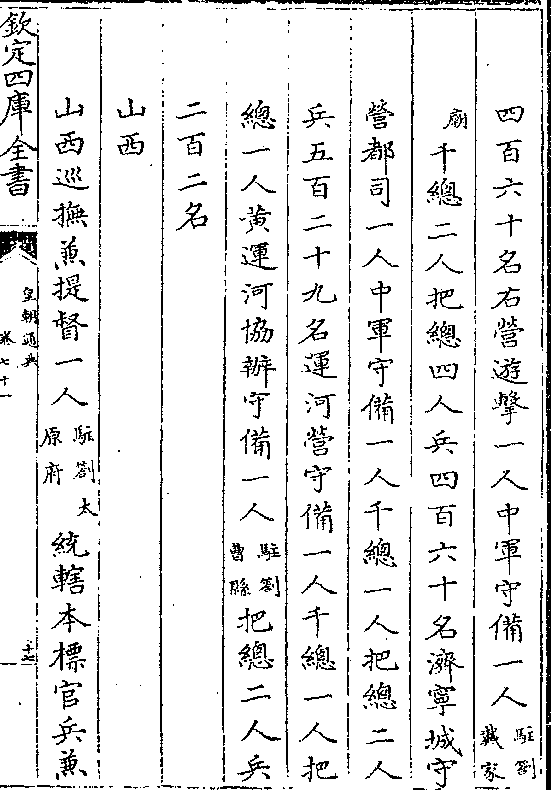 四百六十名右營遊擊一人中軍守備一人駐劄戴家
廟千總二人把總四人兵四百六十名濟寧城守
營都司一人中軍守備一人千總一人把總二人
兵五百二十九名運河營守備一人千總一人把
總一人黃運河協辦守備一人駐劄曹縣把總二人兵
二百二名
山西
山西巡撫兼提督一人駐劄太原府統轄本標官兵兼
欽定四庫全書
皇朝通典
卷七十一